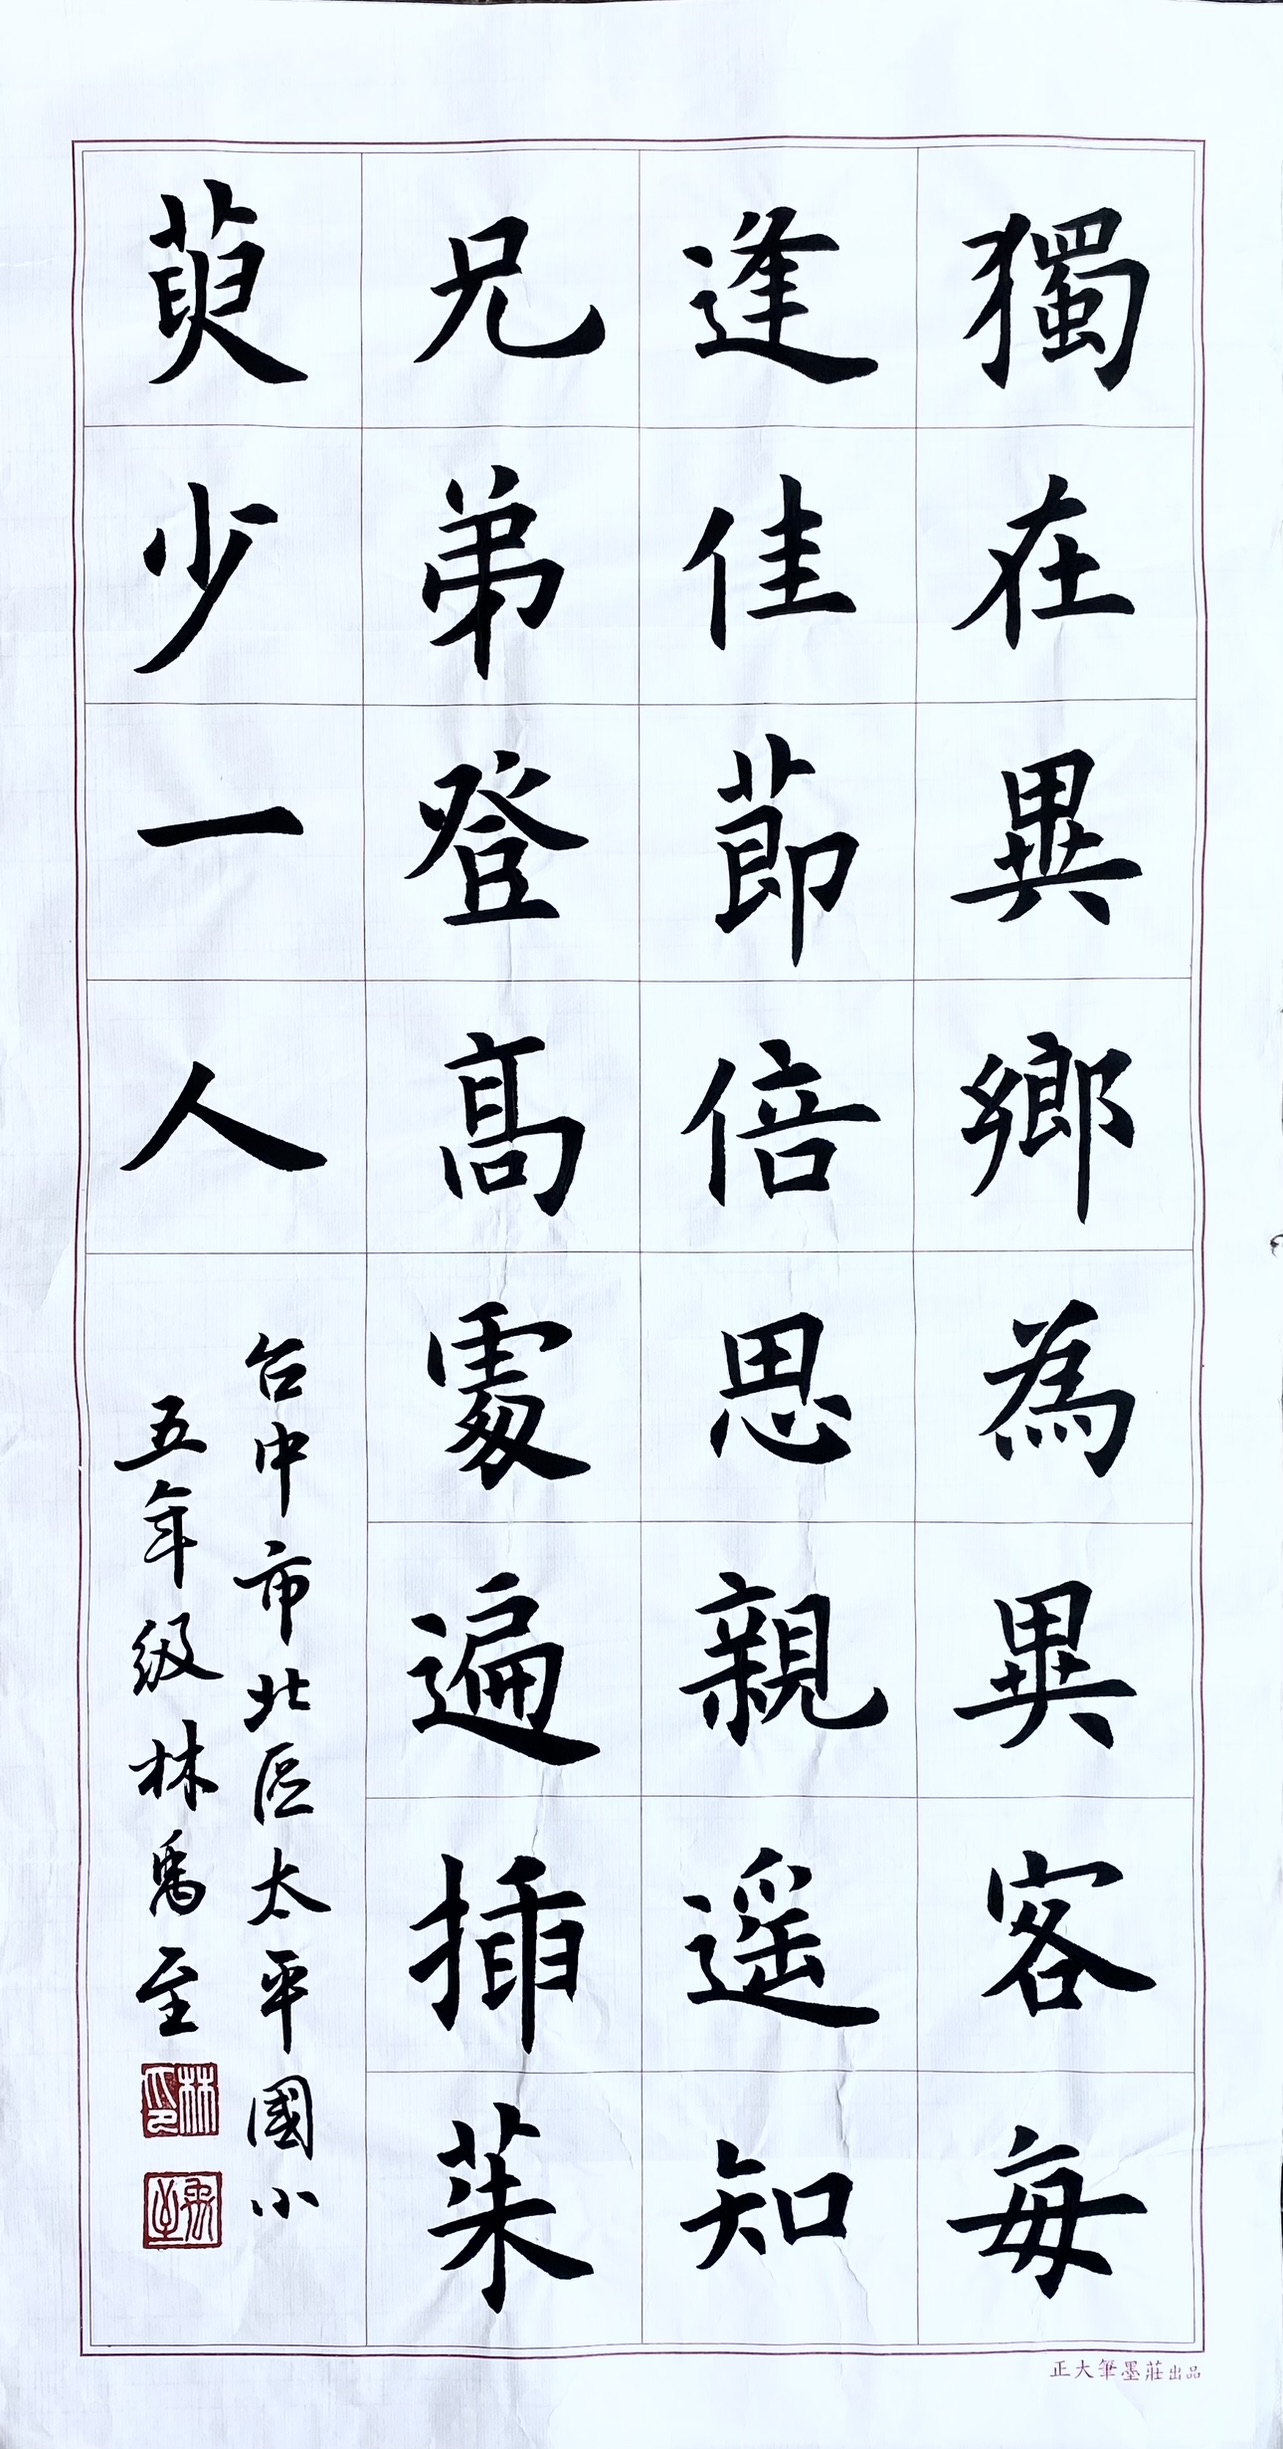 獨在異鄉為異客每
逢佳節倍思親遥知
兄弟登高處遍插茱
萸少一人
台中市北區太平國小
五年级林禹至
林印
禹至
正大筆墨莊出品